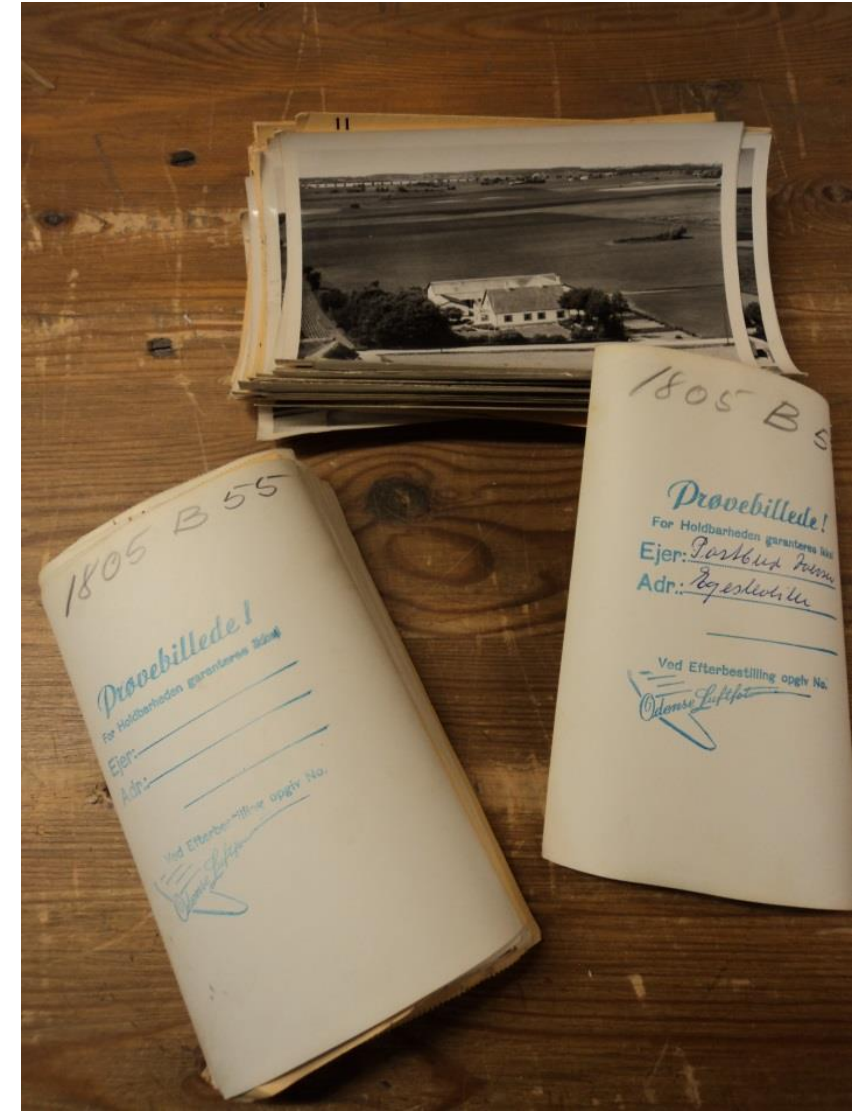 1805 B 5
Prøvebillede!
For Holdbarheden garanteres ikke!
Ejer: Postbud
Adr.:
Ved Efterbestilling opgiv No.
Odense Luftfoto
1805 B 55
Prøvebillede!
For Holdbarheden garanteres ikke!
Ejer:
Adr.:
Ved Efterbestilling opgiv No.
Odense Luftfoto